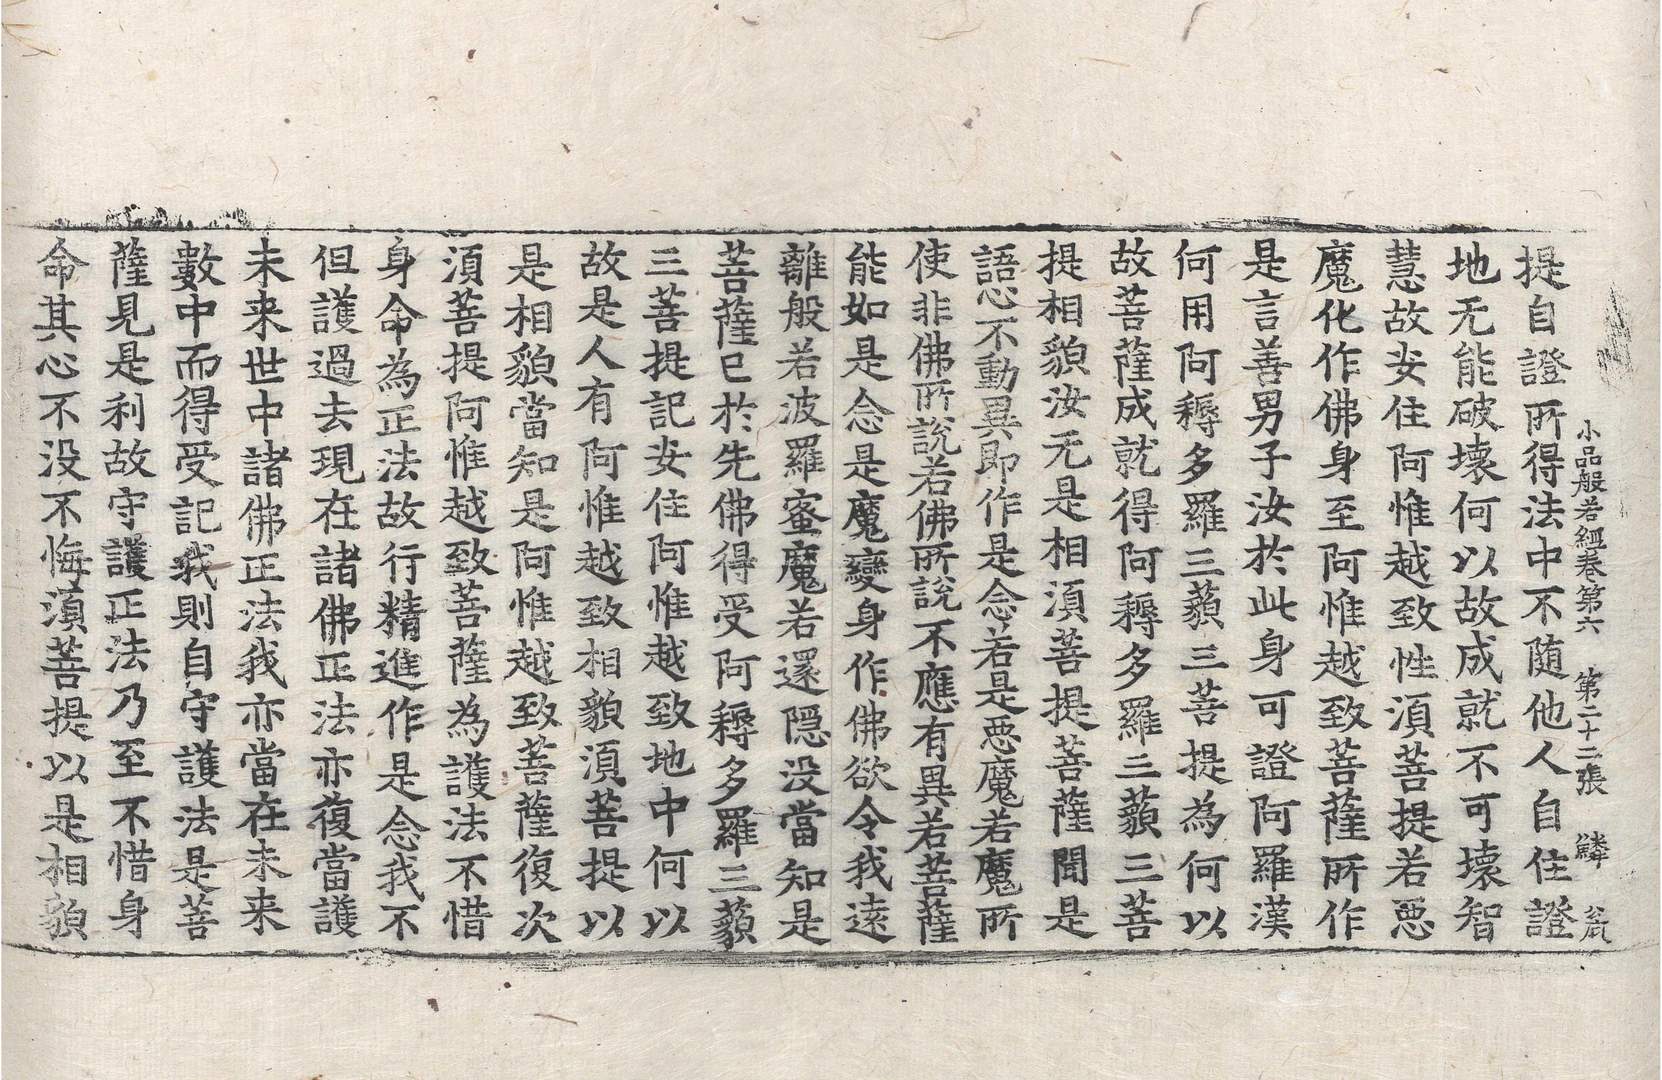 小品般若經卷第六 第二十二張 鱗
提自證所得法中不随他人自住證
地无能破壞何以故成就不可壞智
慧故安住阿惟越致性湏菩提若恶
魔化作佛身至阿惟越致菩薩所作
是言善男子汝於此身可證阿羅漢
何用阿耨多羅三藐三菩提為何以
故菩薩成就得阿耨多羅三藐三菩
提相貌汝无是相湏菩提菩薩聞是
語心不動異即作是念若是恶魔若魔所
使非佛所說若佛所說不應有異若菩薩
能如是念是魔變身作佛欲令我遠
離般若波羅蜜魔若還隠没當知是
菩薩已於先佛得受阿耨多羅三藐
三菩提記安住阿惟越致地中何以
故是人有阿惟越致相貌湏菩提以
是相貌當知是阿惟越致菩薩復次
湏菩提阿惟越致菩薩為護法不惜
身命為正法故行精進作是念我不
但護過去現在諸佛正法亦復當護
未来世中諸佛正法我亦當在未来
數中而得受記我則自守護法是菩
薩見是利故守護正法乃至不惜身
命其心不没不悔湏菩提以是相貌